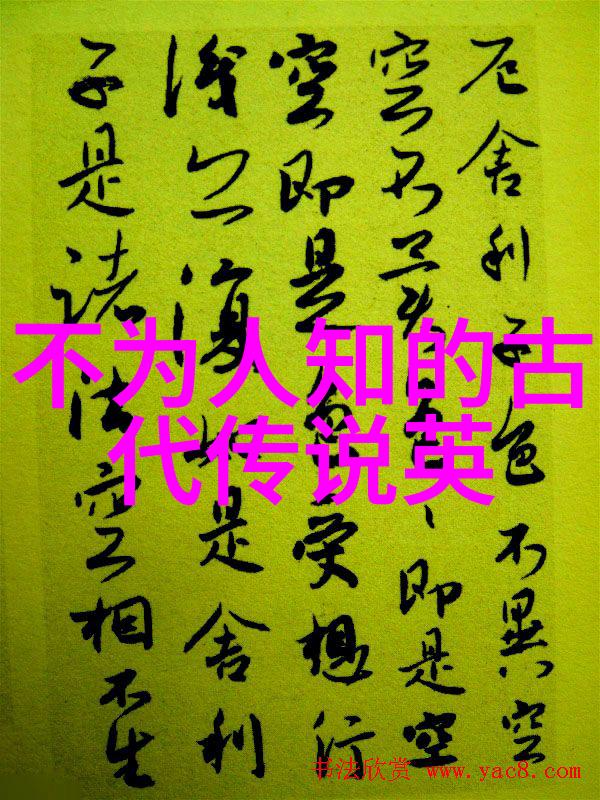 厄舍利子色不異空
空不異色、即是空
空即是色受想行
識亦復如是舍利
子是諸法空相不生
不为人知的古
代传说英
书法欣赏 www.yac8.com